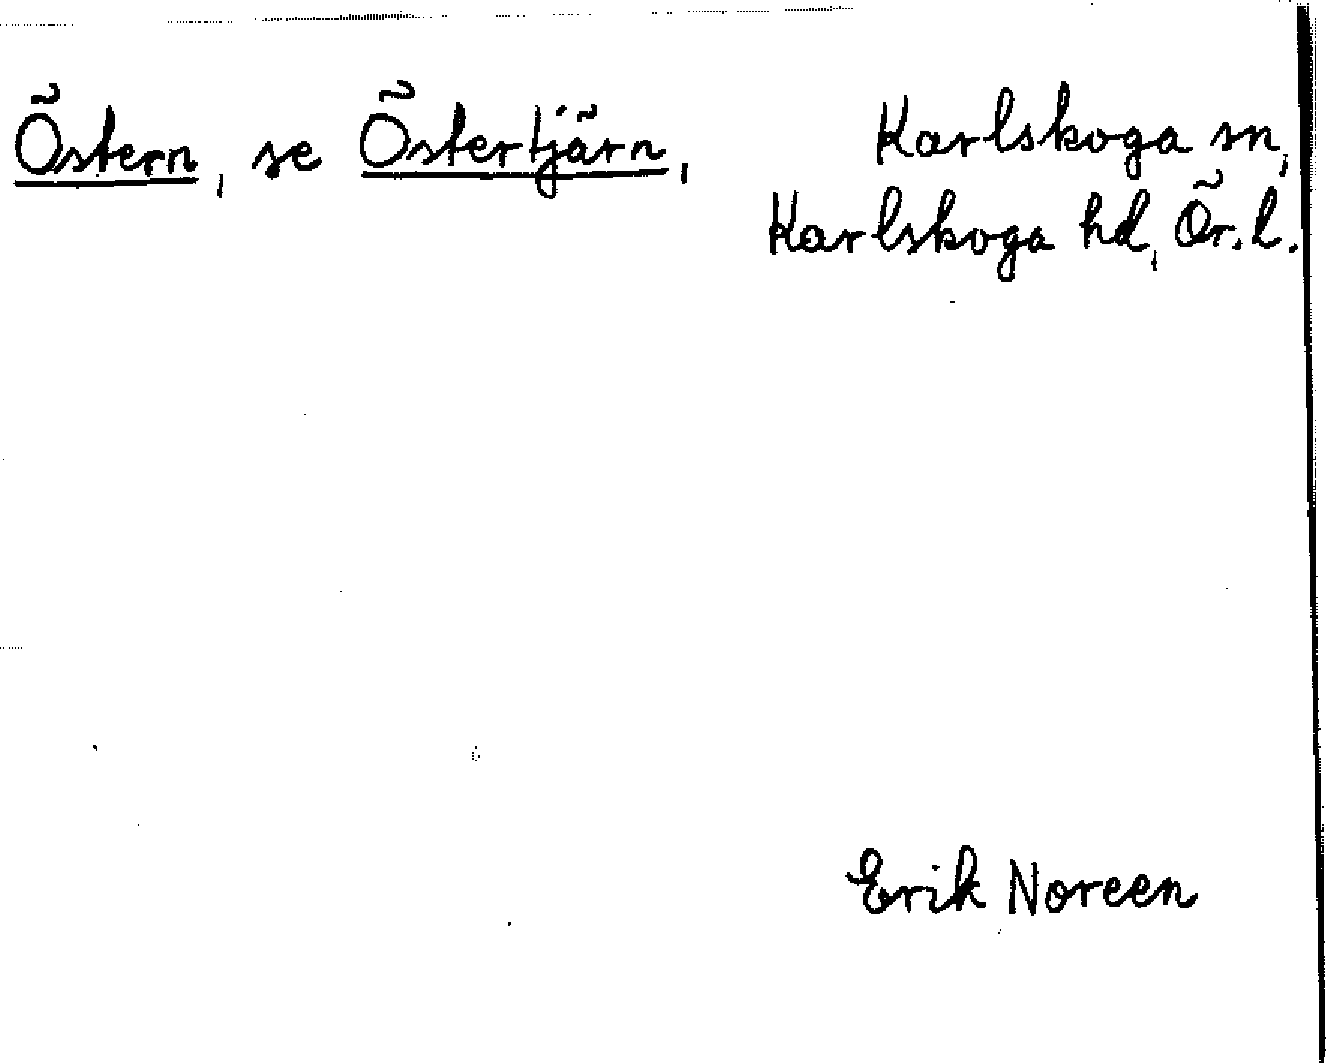 Östern, se Östertjärn, Karlskoga sn,
Karlskoga hd, Ör. l.
Erik Noreen